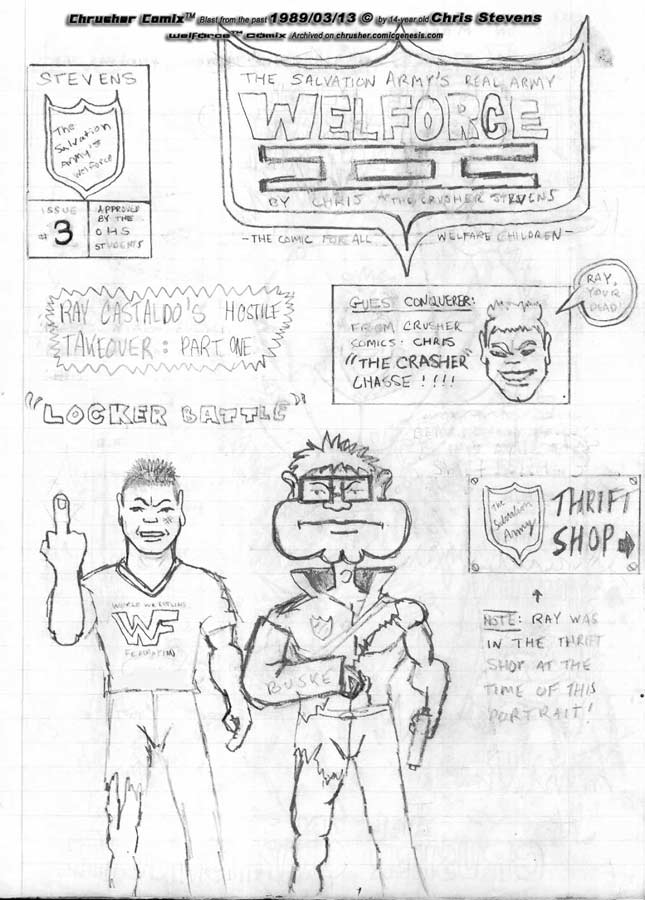 Chrusher Comix™ Blast from the past 1989/03/13 © by 14-year old Chris Stevens
Welforce™ Comix Archived on chrusher.comicgenesis.com
STEVENS
The
Salvation
Army's
Welforce
ISSUE
#3
APPROVED
BY THE
OHS
STUDENTS
THE SALVATION ARMY'S REAL ARMY
WELFORCE
III
BY CHRIS "THE CRUSHER" STEVENS
-THE COMIC FOR ALL WELFARE CHILDREN-
RAY CASTALDO'S HOSTILE
TAKEOVER: PART ONE
GUEST CONQUERER:
FROM CRUSHER
COMICS: CHRIS
"THE CRASHER"
CHASSE!!!!
RAY,
YOUR
DEAD!
"LOCKER BATTLE"
WORLD WRESTLING
WF
FEDERATION
BUSKE
The
Salvation
Army
THRIFT
SHOP
NOTE: RAY WAS
IN THE THRIFT
SHOP AT THE
TIME OF THIS
PORTRAIT!
1